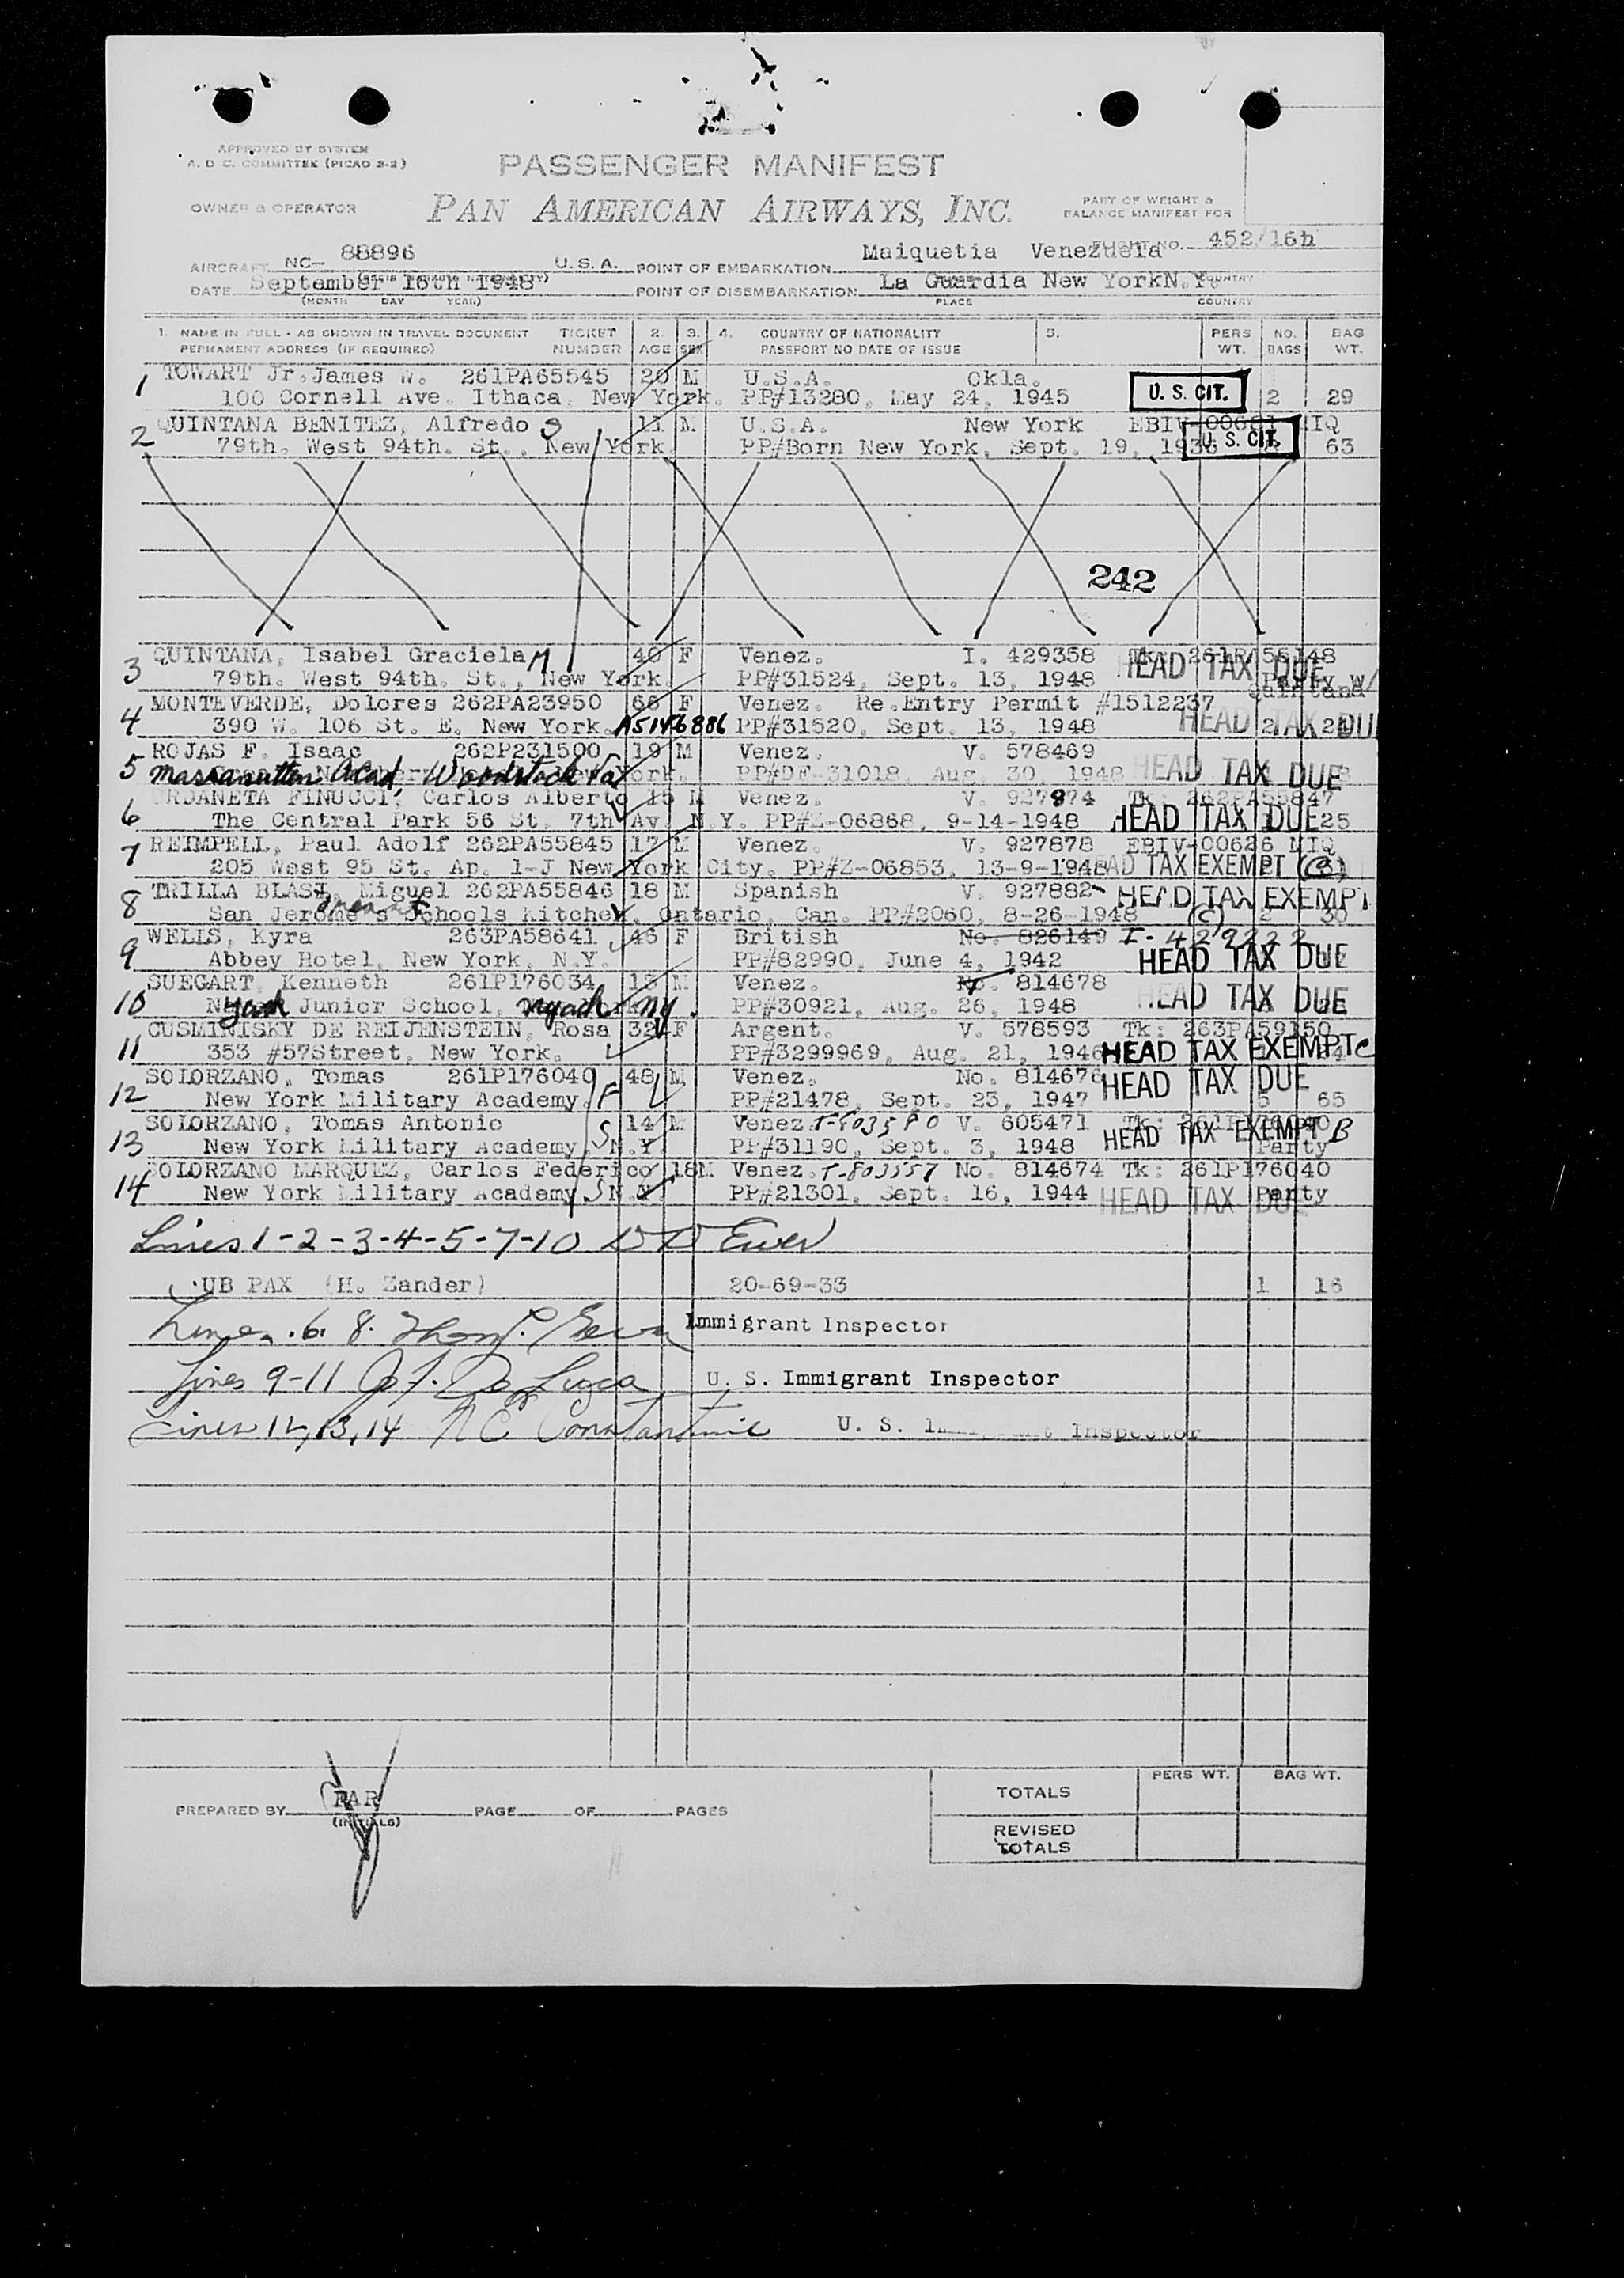 APPROVED BY SYSTEM
A. D C. COMMITTEE (PICAO 2-2)
PASSENGER MANIFEST
OWNER & OPERATOR
PAN AMERICAN AIRWAYS, INC.
PART OF WEIGHT &
BALANCE MANIFEST FOR
AIRCRAFT NC- 88896 U.S.A. POINT OF EMBARKATION Maiquetia Venezuela FLIGHT NO. 452/16th
DATE September 16th 1948 POINT OF DISEMBARKATION La Guardia New York N.Y.
(MONTH DAY YEAR) PLACE COUNTRY
1. NAME IN FULL - AS SHOWN IN TRAVEL DOCUMENT TICKET 2. 3. 4. COUNTRY OF NATIONALITY 5. PERS NO. BAG
PERMANENT ADDRESS (IF REQUIRED) NUMBER AGE SEX PASSPORT NO DATE OF ISSUE WT. BAGS WT.
1 TOWART Jr. James W. 261PA65545 20 M U.S.A. Okla.
100 Cornell Ave. Ithaca, New York. PP#13280, May 24, 1945 U. S. CIT. 2 29
2 QUINTANA BENITEZ, Alfredo S 11 M U.S.A. New York EBIV-00681 MIQ
79th. West 94th. St., New York PP#Born New York, Sept. 19, 1936 U. S. CIT. 63
242
3 QUINTANA, Isabel Graciela M 40 F Venez. I. 429358 Tk: 261PA55148
79th. West 94th. St., New York. PP#31524, Sept. 13, 1948 HEAD TAX DUE Party w/
Quintana
4 MONTEVERDE, Dolores 262PA23950 66 F Venez. Re.Entry Permit #1512237
390 W. 106 St. E. New York. A5146886 PP#31520, Sept. 13, 1948 HEAD TAX DUE 2
5 ROJAS F. Isaac 262P231500 19 M Venez. V. 578469
Massanutten Acad, Woodstock Va PP#DF-31018, Aug. 30, 1948 HEAD TAX DUE
6 URDANETA FINUCCI, Carlos Alberto 15 M Venez. V. 927874 Tk: 262PA55847
The Central Park 56 St. 7th Av. N.Y. PP#Z-06868, 9-14-1948 HEAD TAX DUE 25
7 REIMPELL, Paul Adolf 262PA55845 17 M Venez. V. 927878 EBIV-00626 MIQ
205 West 95 St. Ap. 1-J New York City. PP#Z-06853, 13-9-1948 HEAD TAX EXEMPT (B)
8 TRILLA BLASI, Miguel 262PA55846 18 M Spanish V. 927882 HEAD TAX EXEMPT
San Jerome's Schools Kitchen, Ontario, Can. PP#2060, 8-26-1948 (C) 2 30
9 WELLS, Kyra 263PA58641 46 F British No. 826149 I-429222
Abbey Hotel, New York, N.Y. PP#82990, June 4, 1942 HEAD TAX DUE
10 SUEGART, Kenneth 261P176034 15 M Venez. V. 814678
Nyack Junior School, Nyack NY. PP#30921, Aug. 26, 1948 HEAD TAX DUE
11 CUSMINISKY DE REIJENSTEIN, Rosa 32 F Argent. V. 578593 Tk: 263PA59150
353 #57Street, New York. PP#3299969, Aug. 21, 1946 HEAD TAX EXEMPT C
12 SOLORZANO, Tomas 261P176040 48 M Venez. No. 814676
New York Military Academy. F PP#21478, Sept. 23, 1947 HEAD TAX DUE 5 65
13 SOLORZANO, Tomas Antonio 14 M Venez. V. 605471 Tk: 261P176040
New York Military Academy S N.Y. PP#31190, Sept. 3, 1948 HEAD TAX EXEMPT B Party
14 SOLORZANO MARQUEZ, Carlos Federico 18M Venez. T-803557 No. 814674 Tk: 261P176040
New York Military Academy S N.Y. PP#21301, Sept. 16, 1944 HEAD TAX DUE Party
Lines 1-2-3-4-5-7-10
UB PAX (H. Zander) 20-69-33 1 16
Lines 6. 8. Immigrant Inspector
Lines 9-11 J. F. De Luca U. S. Immigrant Inspector
Lines 12, 13, 14 N E Constantine U. S. Immigrant Inspector
PREPARED BY PAR PAGE OF PAGES
(INITIALS)
PERS WT. BAG WT.
TOTALS
REVISED
TOTALS